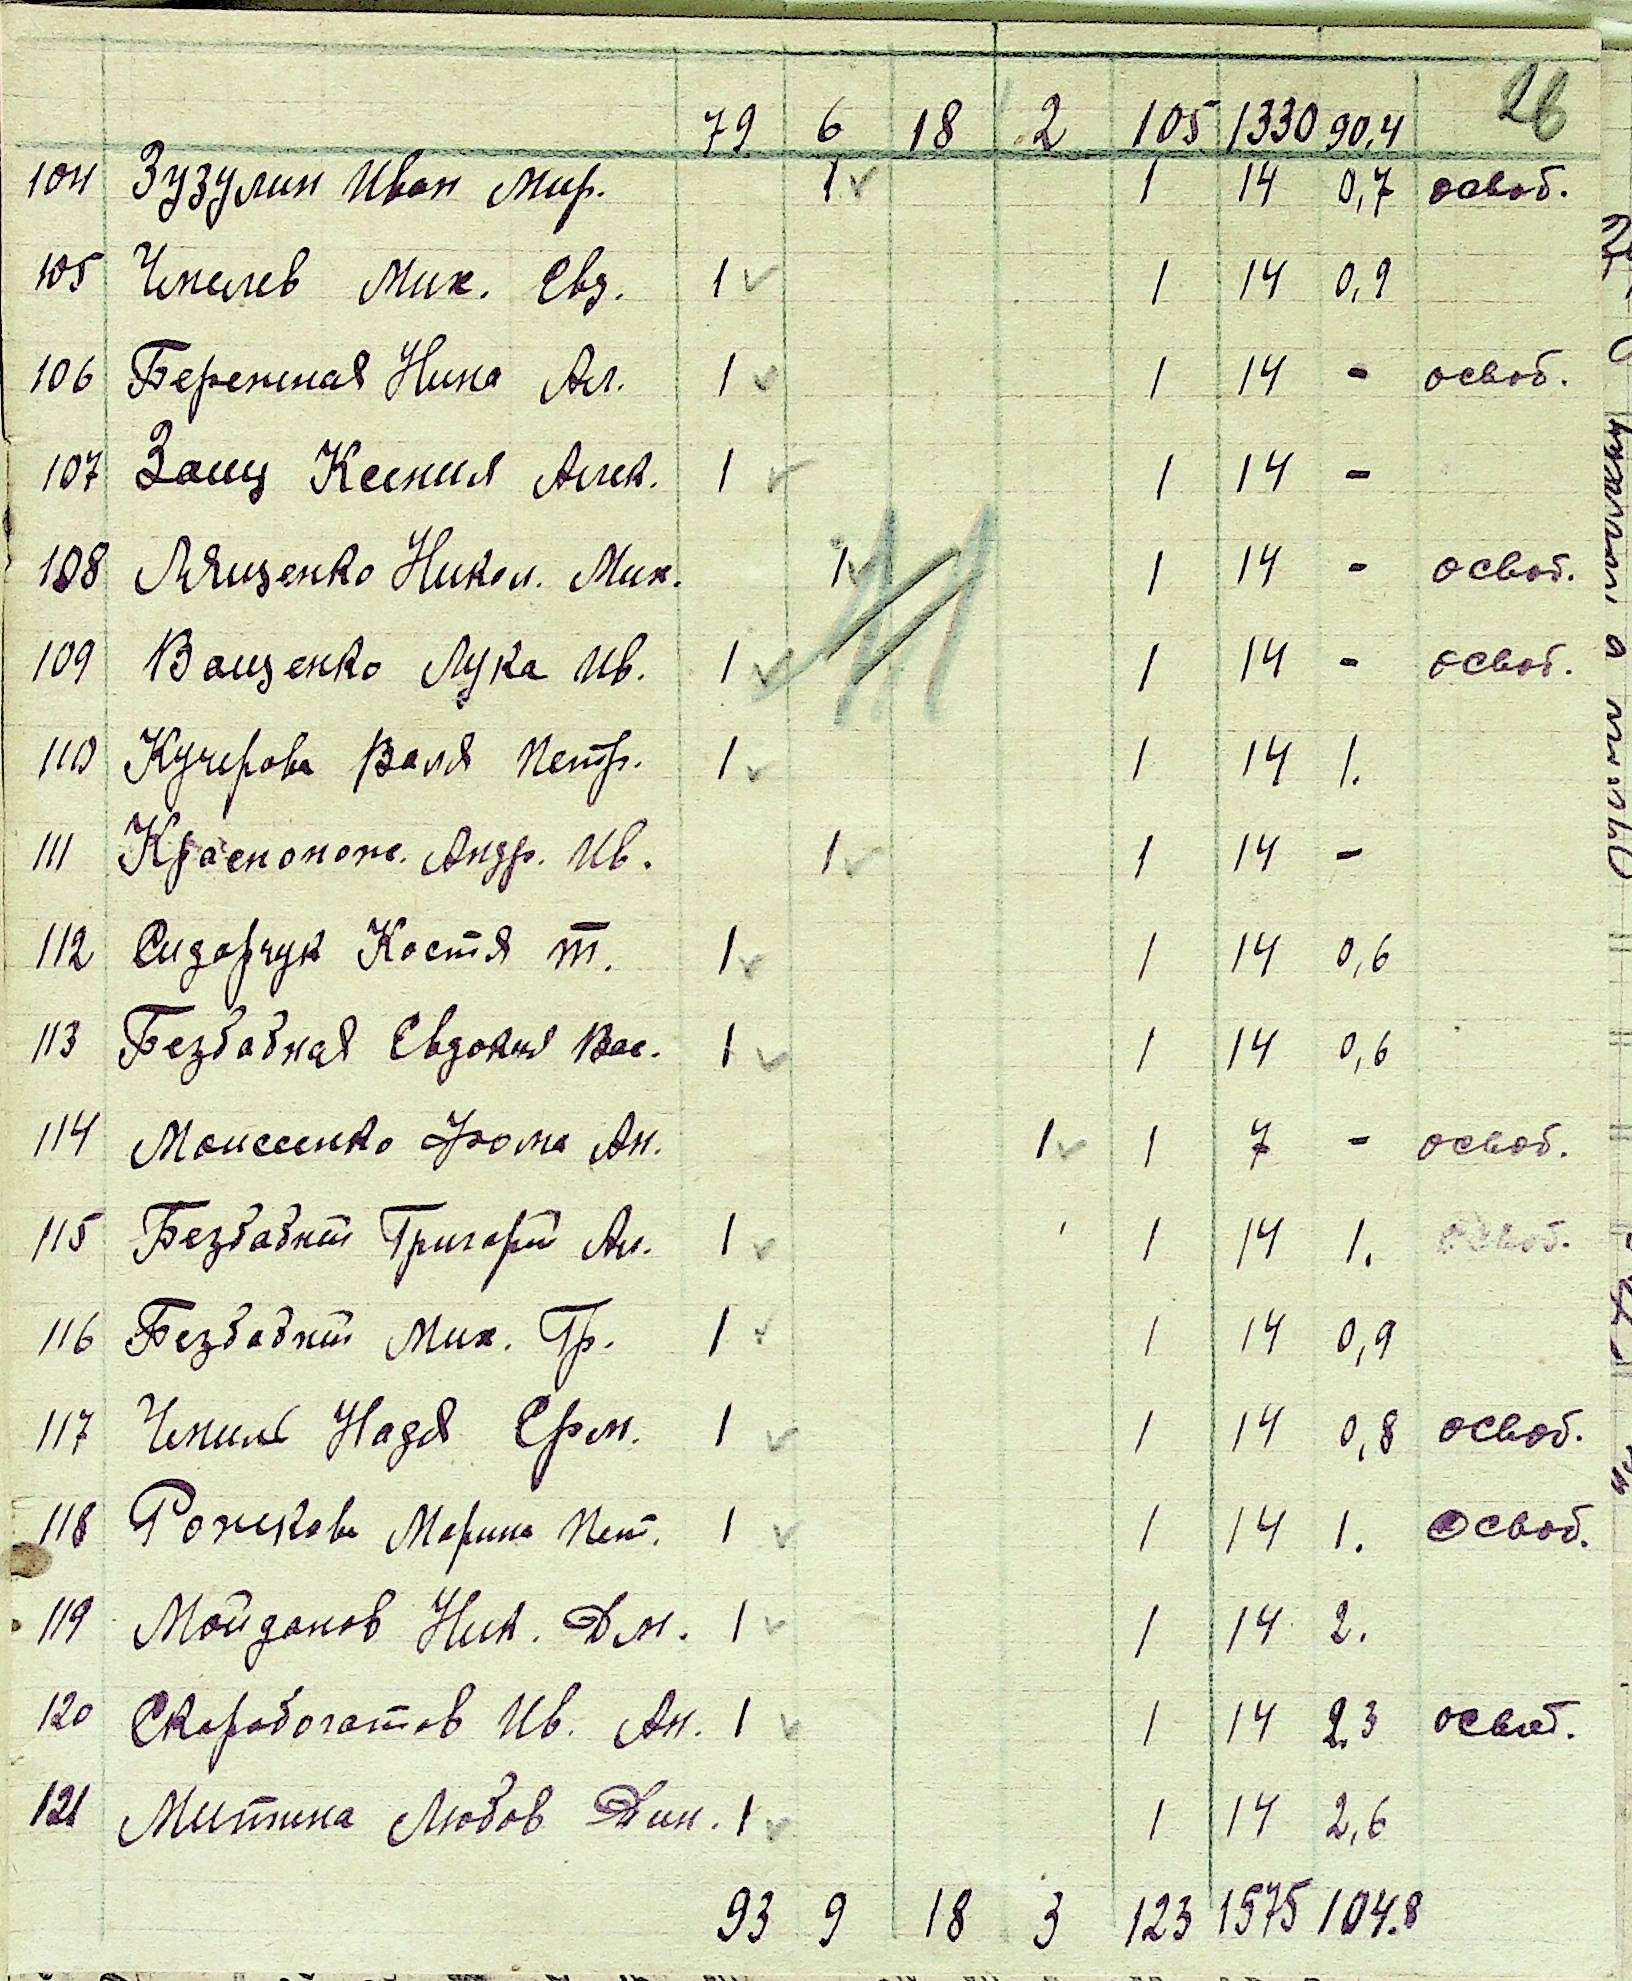 26
79 6 18 2 105 1330 90,4
104 Зузулин Иван Мир. 1 1 14 0,7 освоб.
105 Чмелев Мих. Евд. 1 1 14 0,9
106 Бережная Нина Ал. 1 1 14 - освоб.
107 Заяц Ксения Алек. 1 1 14 -
108 Лященко Никол. Мих. 1 1 14 - освоб.
109 Ващенко Лука Ив. 1 1 14 - освоб.
110 Кучерова Валя Петр. 1 1 14 1.
111 Краснонож. Андр. Ив. 1 1 14 -
112 Сидорчук Костя Т. 1 1 14 0,6
113 Безбабная Евдокия Вас. 1 1 14 0,6
114 Моисеенко Фома Ан. 1 1 7 - освоб.
115 Безбабний Григорий Ал. 1 1 14 1. освоб.
116 Безбабний Мих. Гр. 1 1 14 0,9
117 Чмиль Надя Ефм. 1 1 14 0,8 освоб.
118 Рожкова Марина Пет. 1 1 14 1. освоб.
119 Мойданов Ник. Дм. 1 1 14 2.
120 Скоробогатов Ив. Ан. 1 1 14 2.3 освоб.
121 Митина Любов Дин. 1 1 14 2,6
93 9 18 3 123 1575 104.8